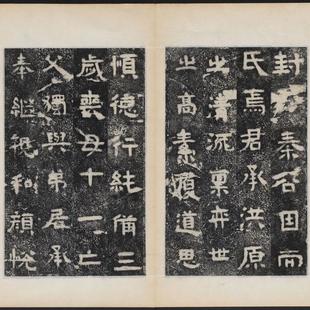 封秦因而
氏焉君承洪原
之清流稟弈世
之高素履道思
順德行純備三
歲喪母十一亡
父獨與弟居承
奉繼親和顏悅